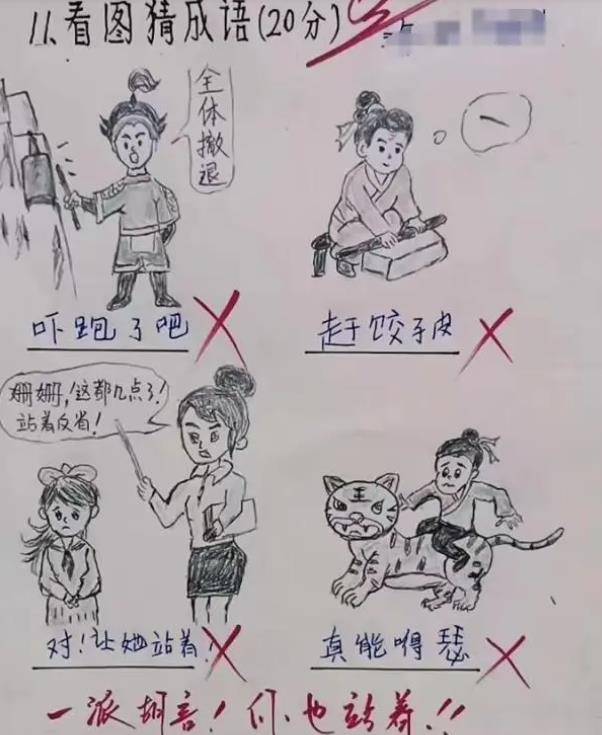 11.看图猜成语(20分)
全体撤退
一
吓跑了吧
赶饺子皮
姗姗,这都几点了!
站着反省!
对!让她站着!
真能嘚瑟
一派胡言!你也站着!!